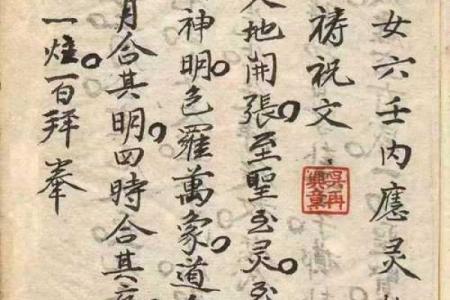 女六壬内應灵
祷祝文
地開張至聖至灵至
神明包羅萬象道
月合其明四時合其
一炷百拜奉